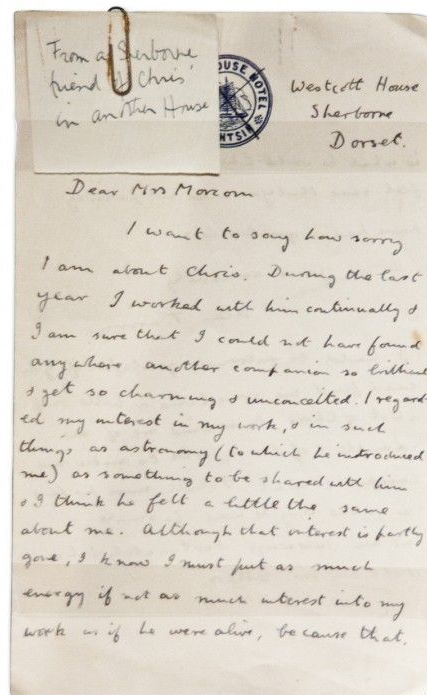 From a Sherborne
friend of Chris'
in another House
OUSE HOTEL
NTSI
Westcott House
Sherborne
Dorset.
Dear Mrs Morcom
I want to say how sorry
I am about Chris. During the last
year I worked with him continually &
I am sure that I could not have found
anywhere another companion so brilliant
& yet so charming & unconceited. I regard-
ed my interest in my work, & in such
things as astronomy (to which he introduced
me) as something to be shared with him
& I think he felt a little the same
about me. Although that interest is partly
gone, I know I must put as much
energy if not as much interest into my
work as if he were alive, because that.